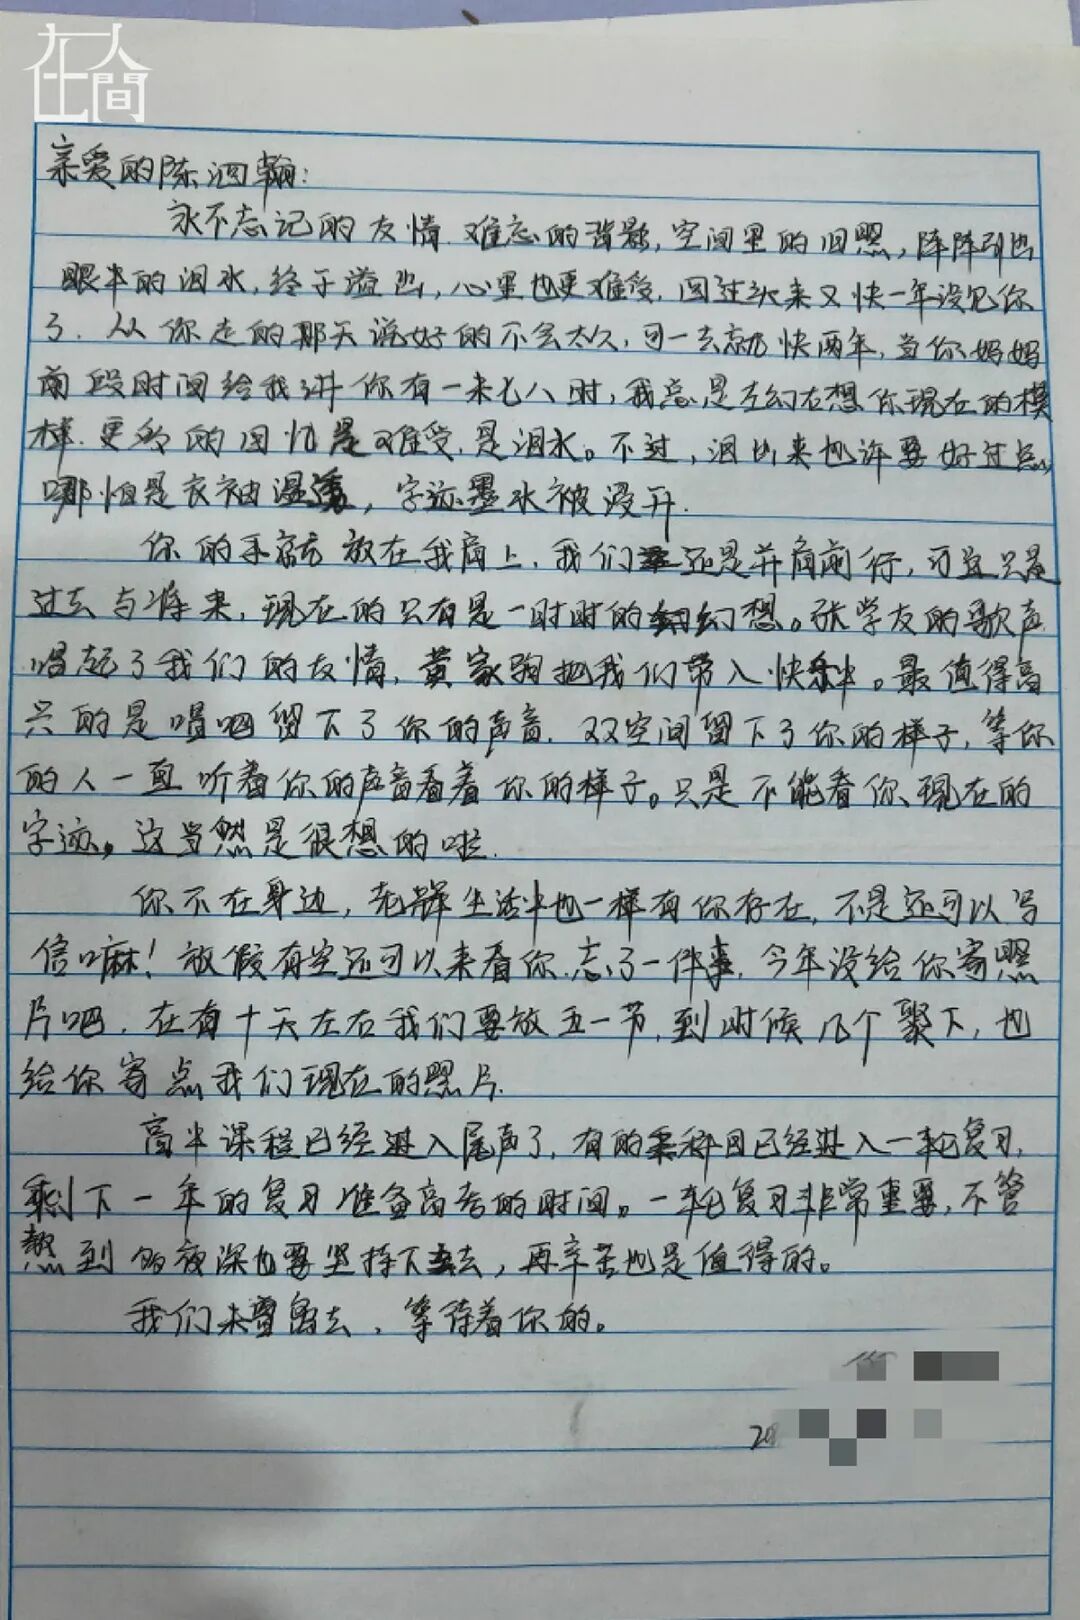 在人間
亲爱的陈泗翰:
永不忘记的友情.难忘的背影,空间里的旧照,阵阵引出
眼中的泪水,终于溢出,心里也更难受,回过头来又快一年没见你
了.从你走的那天说好的不会太久,可一去就快两年,当你妈妈
前段时间给我讲你有一米七八时,我总是在幻想你现在的模
样.更多的回忆是难受,是泪水。不过,泪出来也许要好过点,
哪怕是衣袖湿透,字迹墨水被浸开.
你的手就放在我肩上,我们还是并肩前行,可这只是
过去与将来,现在的只有是一时时的幻想。张学友的歌声
唱起了我们的友情,黄家驹把我们带入快乐中。最值得高
兴的是唱吧留下了你的声音.双双空间留下了你的样子,等你
的人一直听着你的声音看着你的样子。只是不能看你现在的
字迹,这当然是很想的啦.
你不在身边,老群生活中也一样有你存在,不是还可以写
信嘛!放假有空还可以来看你.忘了一件事,今年没给你寄照
片吧.在有十天左右我们要放五一节,到时候几个聚下,也
给你寄点我们现在的照片.
高中课程已经进入尾声了,有的科目已经进入一轮复习,
剩下一年的复习准备高考的时间。一轮复习非常重要,不管
熬到多夜深也要坚持下去,再辛苦也是值得的。
我们未曾离去,等待着你的。
20